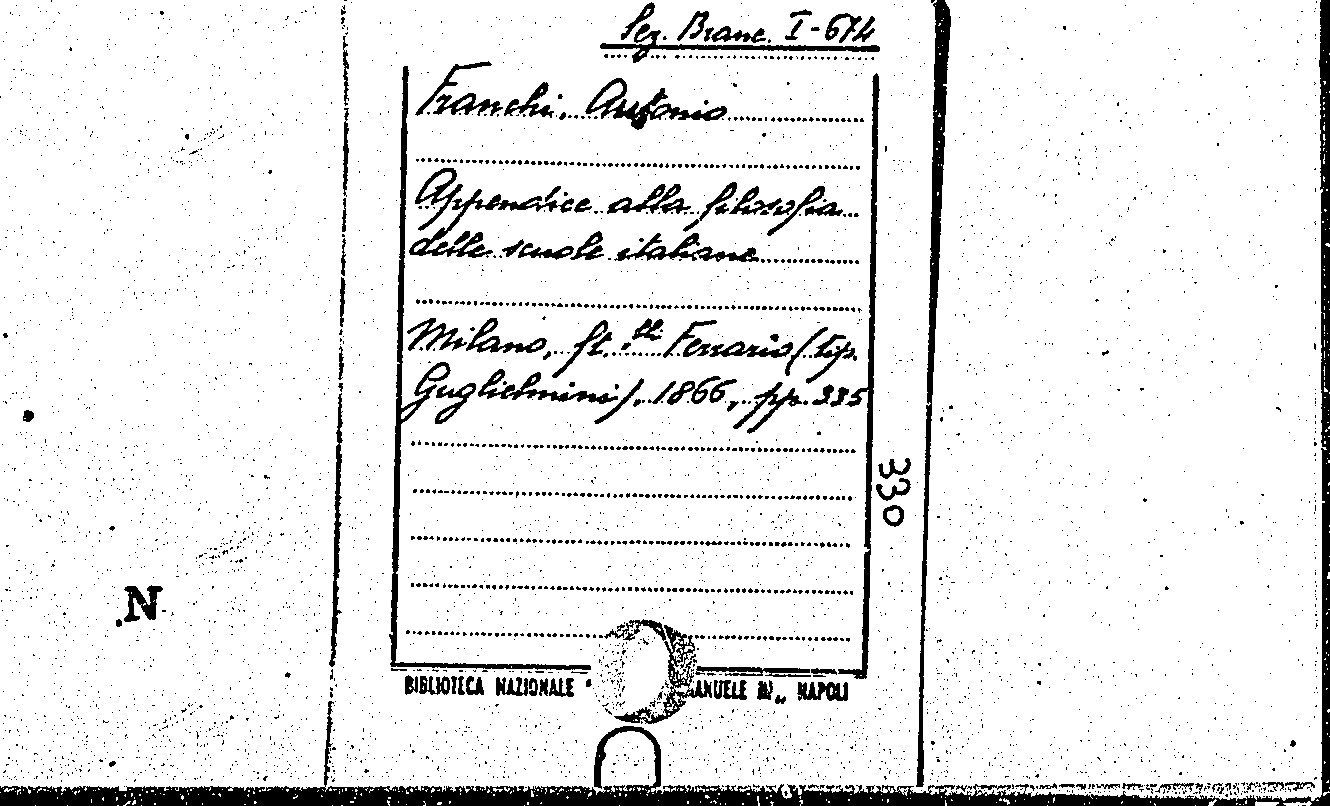 Sez. Branc. I-674
Franchi, Ausonio
Appendice alla filosofia
delle scuole italiane
Milano, ft.lli Ferrario (tip.
Guglielmini), 1866, pp. 335
330
N
BIBLIOTECA NAZIONALE " ANUELE III „ NAPOLI